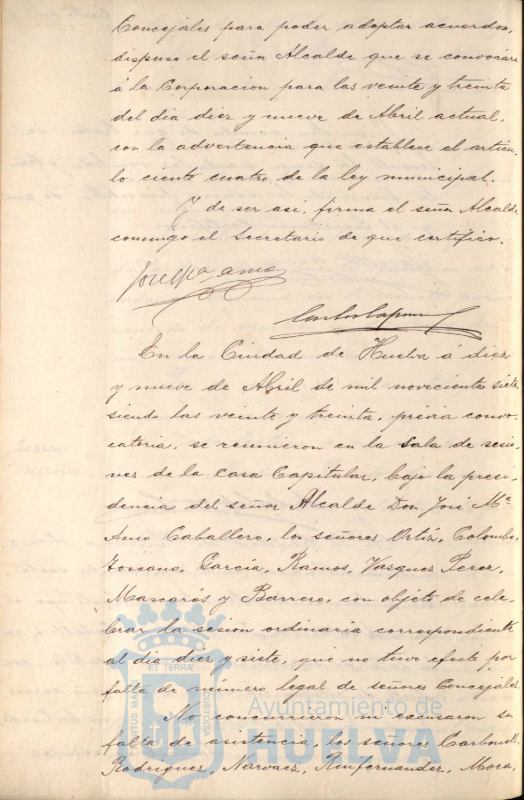 Concejales para poder adoptar acuerdos,
dispuso el señor Alcalde que se convocára
á la Corporacion para las veinte y treinta
del dia diez y nueve de Abril actual,
con la advertencia que establece el artícu-
lo ciento cuatro de la ley municipal.
Y de ser asi, firma el señor Alcalde
conmigo el Secretario de que certifico.
José Mª amo
En la Ciudad de Huelva á diez
y nueve de Abril de mil novecientos siete,
siendo las veinte y treinta, prévia convo-
catoria, se reunieron en la Sala de sesio-
nes de la Casa Capitular, bajo la presi-
dencia del señor Alcalde Don José Mª
Amo Caballero, los señores Ortíz, Colombo,
Toscano, García, Ramos, Vasques Perez,
Mascarós y Barrero, con objeto de cele-
brar la sesion ordinaria correspondiente
al dia diez y siete, que no tuvo efecto por
falta de número legal de señores Concejales.
No concurrieron ni excusaron su
falta de asistencia, los señores Carbonell,
Rodriguez, Narvaez, Mora,
PORTUS MARIS
ET TERRÆ
CUSTODIA
Ayuntamiento de
HUELVA